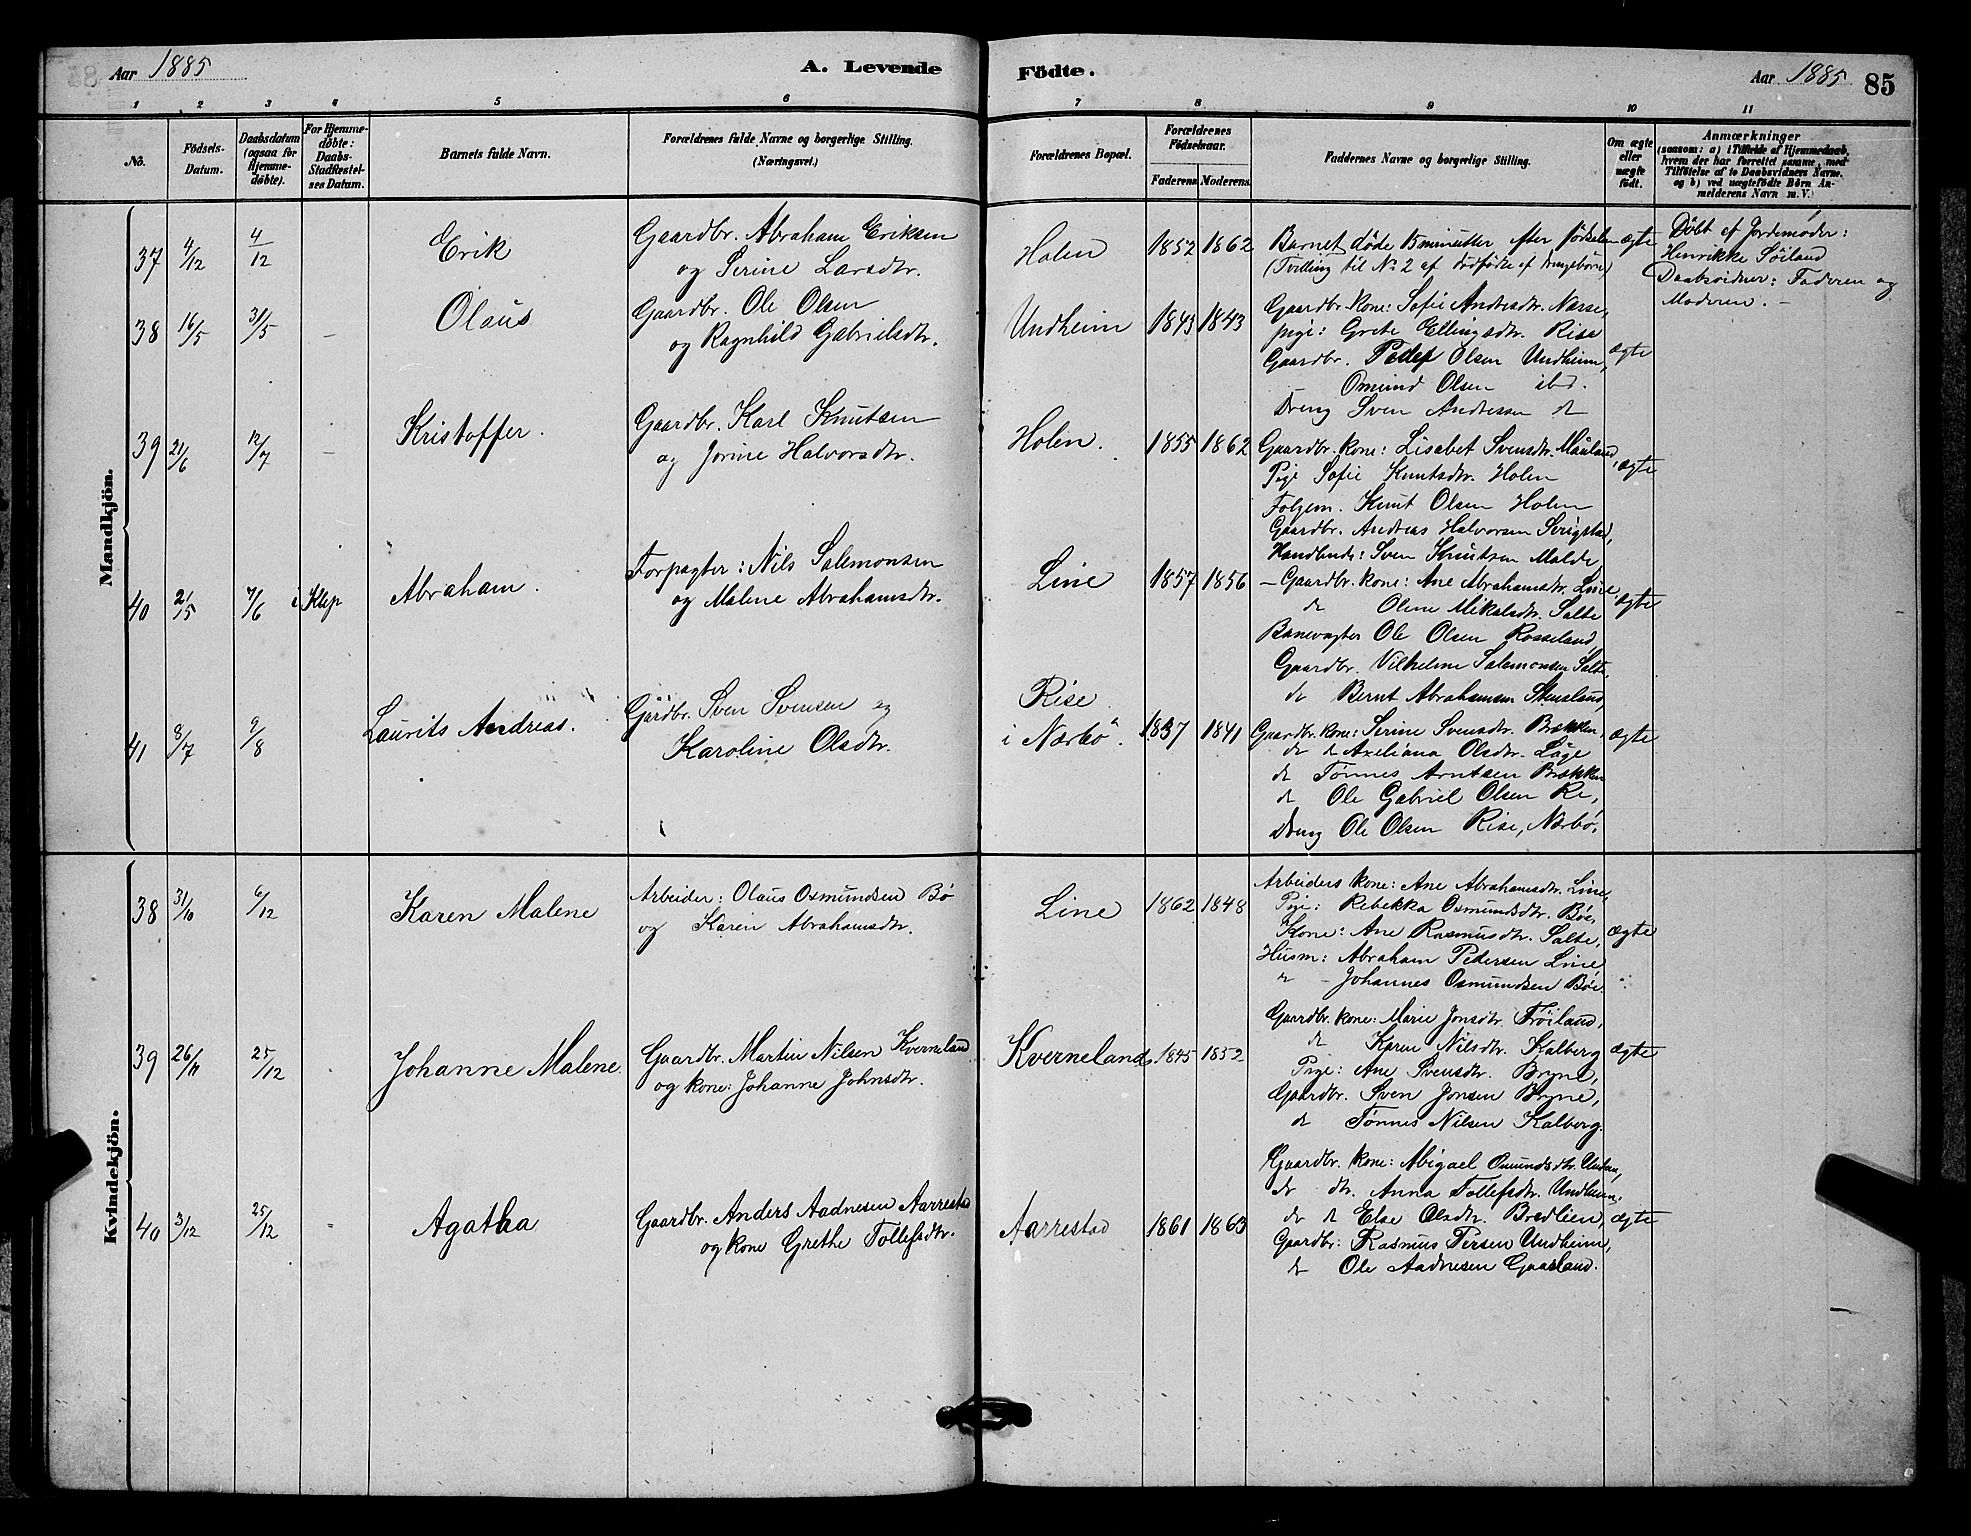 Aar 1885
A. Levende
Födte.
Aar 1885
85
1 2 3 4 5 6 7 8 9 10 11
No.
Födsels-
Datum.
Daabsdatum
(ogsaa for
Hjemme-
döbte).
For Hjemme-
döbte:
Daabs-
Stadfæstel-
ses Datum.
Barnets fulde Navn.
Forældrenes fulde Navne og borgerlige Stilling.
(Næringsvei.)
Forældrenes Bopæl.
Forældrenes
Födselsaar.
Faderens Moderens
Faddernes Navne og borgerlige Stilling.
Om ægte
eller
uægte
födt.
Anmærkninger
(saasom: a) i Tilfælde af Hjemmedaab,
hvem der har forrettet samme, med
Tilföielse af to Daabsvidners Navne,
og b) ved uægtefödte Börn An-
melderens Navn m. V.)
Mandkjön.
37 4/12 4/12
Erik
Gaardbr. Abraham Eriksen
og Serine Larsdtr.
Holen 1852 1862
Barnet döde 15 minutter efter födselen
(Tvilling til No 2 af dödfödte af Drengebörn)
ægte
Döbt af Jordemoder:
Henrikke Söiland
Daabsvidner: Faderen og
Moderen. –
38 16/5 31/5 –
Olaus
Gaardbr. Ole Olsen
og Ragnhild Gabrielsdtr.
Undheim 1843 1843
Gaardbr. kone: Sofie Andreasdtr. Næsse,
pige: Grete Ellingsdtr. Rise
Gaardbr. Peder Olsen Undheim,
Omund Olsen ibd.
Dreng Sven Andersen d
ægte
39 21/6 12/7 –
Kristoffer.
Gaardbr. Karl Knutsen
og Jorine Halvorsdtr.
Holen. 1855 1862
Gaardbr. kone: Lisabet Svensdtr. Mauland,
Pige Sofie Knutsdtr. Holen
Folgem. Knut Olsen Holen
Gaardbr. Andreas Halvorsen Serigstad,
Handlende: Sven Knutsen Malde,
ægte
40 2/5 7/6 i Klep
Abraham.
Forpagter: Nils Salemonsen
og Malene Abrahamsdtr.
Line 1857 1856
– Gaardbr. kone: Ane Abrahamsdtr. Line,
d Oline Mikalsdtr. Salte
Banevogter Ole Olsen Rosseland,
Gaardbr. Vilhelm Salamonsen Salte,
d Bernt Abrahamsen Stensland,
ægte
41 8/7 9/8
Laurits Andreas.
Gårdbr. Sven Svensen og
Karoline Olsdtr.
Rise
i Nærbö. 1837 1841
Gaardbr. kone: Serine Svensdtr. Brekken,
d d Axeliana Olsdtr. Låge
d Tönnes Arntsen Brekken
d Ole Gabriel Olsen Re,
Dreng Ole Olsen Rise, Nærbö.
ægte
Kvindekjön.
38 31/10 6/12
Karen Malene
Arbeider: Olaus Osmundsen Bö
og Karen Abrahamsdtr.
Line 1862 1848
Arbeiders kone: Ane Abrahamsdtr. Line,
Pige: Rebekka Osmundsdtr. Böe,
Kone: Ane Rasmusdtr. Salte,
Husm: Abraham Pedersen Line
" – Johannes Osmundsen Böe.
ægte
39 26/11 25/12
Johanne Malene.
Gaardbr. Martin Nilsen Kverneland
og kone: Johanne Johnsdtr.
Kverneland. 1845 1852
Gaardbr. kone: Marie Jonsdtr. Fröiland,
d Karen Nilsdtr. Kalberg
Pige: Ane Svensdtr. Bryne,
Gaardbr. Sven Jonsen Bryne,
d Tönnes Nilsen Kalberg.
ægte
40 3/12 25/12
Agatha
Gaardbr. Anders Aadnesen Aarrestad
og kone Grethe Tollefsdtr.
Aarrestad 1861 1863
Gaardbr. kone: Abigael Omundsdtr.
d d. Anna Tollefsdtr. Undheim,
d d Else Olsdtr. Bredlien,
Gaardbr: Rasmus Persen Undheim,
d Ole Aadnesen Gaasland.
ægte